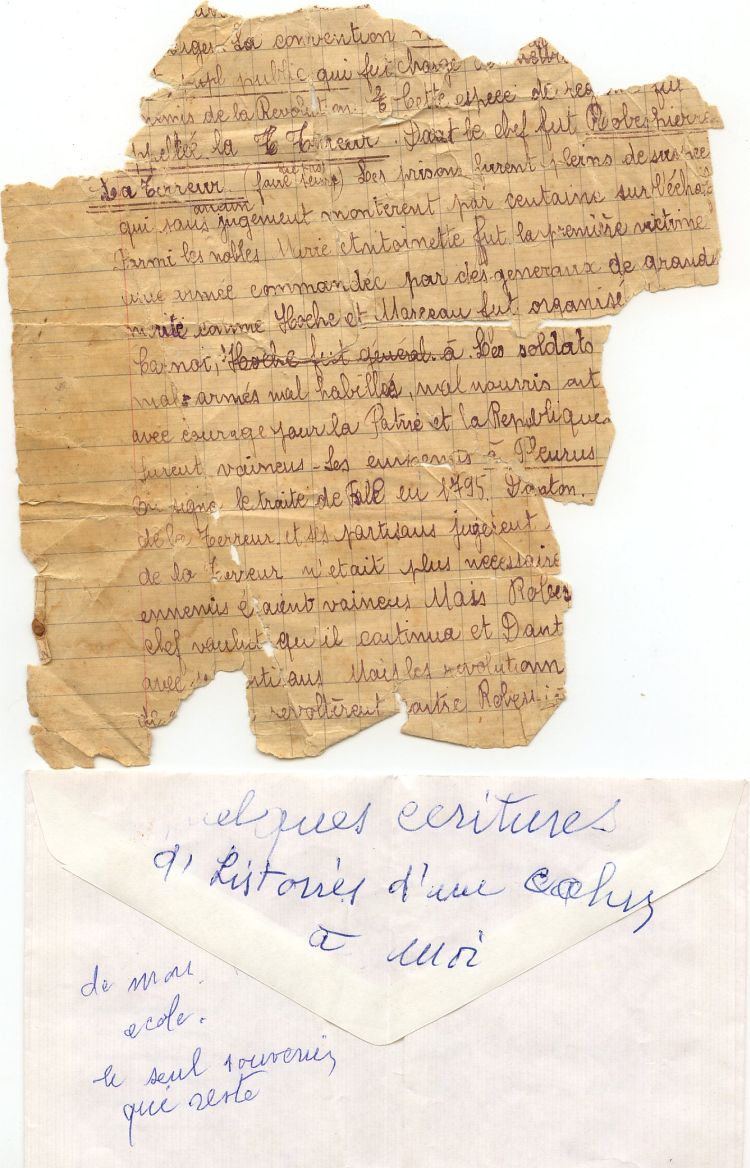 La convention
public qui fut chargé
de la Revolution. Cette espece de
la Terreur. Dont le chef fut Robespierre
La Terreur (faire Les prisons furent pleins de
qui sans aucun jugement monterent par centaine sur l'écha
Parmi les nobles Marie Antoinette fut la première victime
une armée commandée par des generaux de grand
mérite comme Hoche et Marceau fut organisé
Carnot, Hoche fut général à Les soldats
mal armés mal habillés, mal nourris ont
avec courage pour la Patrie et la Republique
furent vaincus - Les ennemis à Fleurus
On signe le traité de Bâle en 1795. Danton
de la Terreur et ses partisans jugèrent
de la Terreur n'était plus necessaire
ennemis étaient vaincus Mais Robes
chef voulut qu'il continua et Dant
avec Mais les revolutionn
revoltèrent contre Robespi
quelques ecritures
d'Listoires d'une cahy
à moi
de mon
ecole.
le seul souvenir
qui reste